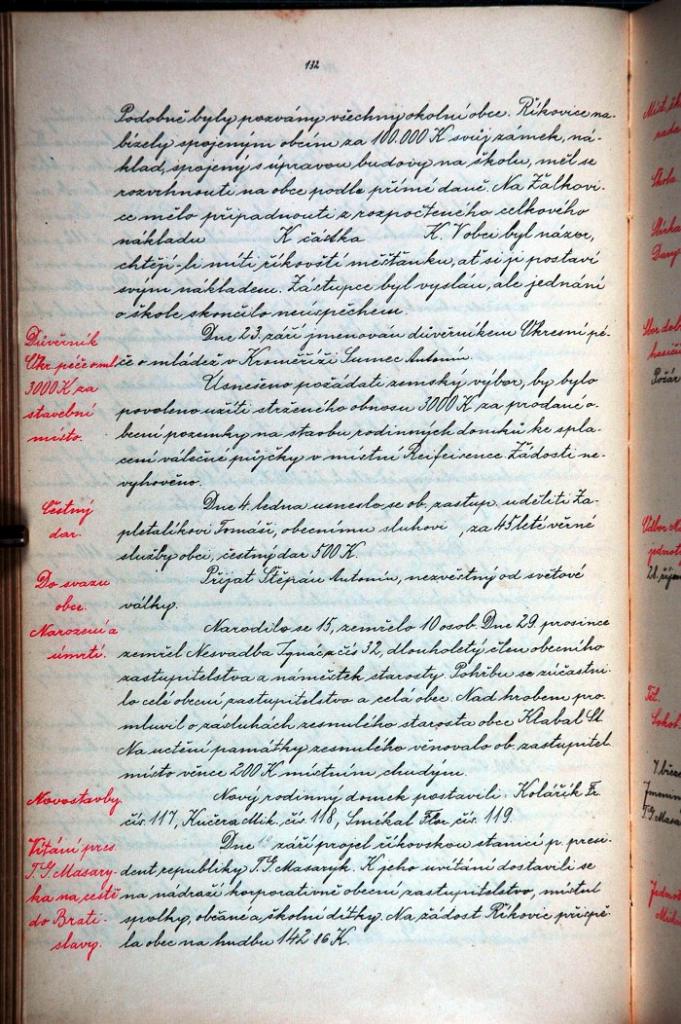 132
Podobně byly pozvány všechny okolní obce. Říkovice na-
bízely spojeným obcím za 100.000 K svůj zámek, ná-
klad, spojený s úpravou budovy na školu, měl se
rozvrhnouti na obce podle přímé daně. Na Žalkovi-
ce mělo připadnouti z rozpočteného celkového
nákladu K částka K. V obci byl názor,
chtějí-li míti říkovští měšťanku, ať si ji postaví
svým nákladem. Zástupce byl vyslán, ale jednání
o škole skončilo neúspěchem.
Důvěrník
Okr. péče o ml.
Dne 23. září jmenován důvěrníkem Okresní pé-
če o mládež v Kroměříži Sumec Antonín.
3000 K za
stavební
místo.
Usnešeno požádati zemský výbor, by bylo
povoleno užíti strženého obnosu 3000 K za prodané o-
becní pozemky na stavbu rodinných domků ke spla-
cení válečné půjčky v místní Reifeisence. Žádosti ne-
vyhověno.
Čestný
dar.
Dne 4. ledna usneslo se ob. zastup. uděliti Za-
pletalíkovi Tomáši, obecnímu sluhovi, za 45 leté věrné
služby obci, čestný dar 500 K.
Do svazu
obce.
Přijat Štěpán Antonín, nezvěstný od světové
války.
Narození a
úmrtí.
Narodilo se 15, zemřelo 10 osob. Dne 29. prosince
zemřel Nesvadba Ignác z čís 32, dlouholetý člen obecního
zastupitelstva a náměstek starosty. Pohřbu se zúčastni-
lo celé obecní zastupitelstvo a celá obec. Nad hrobem pro-
mluvil o zásluhách zesnulého starosta obce Klabal St.
Na uctění památky zesnulého věnovalo ob. zastupitel.
místo věnce 200 K místním chudým.
Novostavby.
Nový rodinný domek postavili: Kolářík Fr.
čís. 117, Kučera Mik. čís. 118, Smékal Flor. čís. 119.
Vítání pres.
T. G. Masary-
ka na cestě
do Brati-
slavy.
Dne září projel říkovskou stanicí p. presi-
dent republiky T. G. Masaryk. K jeho uvítání dostavili se
na nádraží korporativně obecní zastupitelstvo, místní
spolky, občané a školní dítky. Na žádost Říkovic přispě-
la obec na hudbu 142.16 K.
Škola